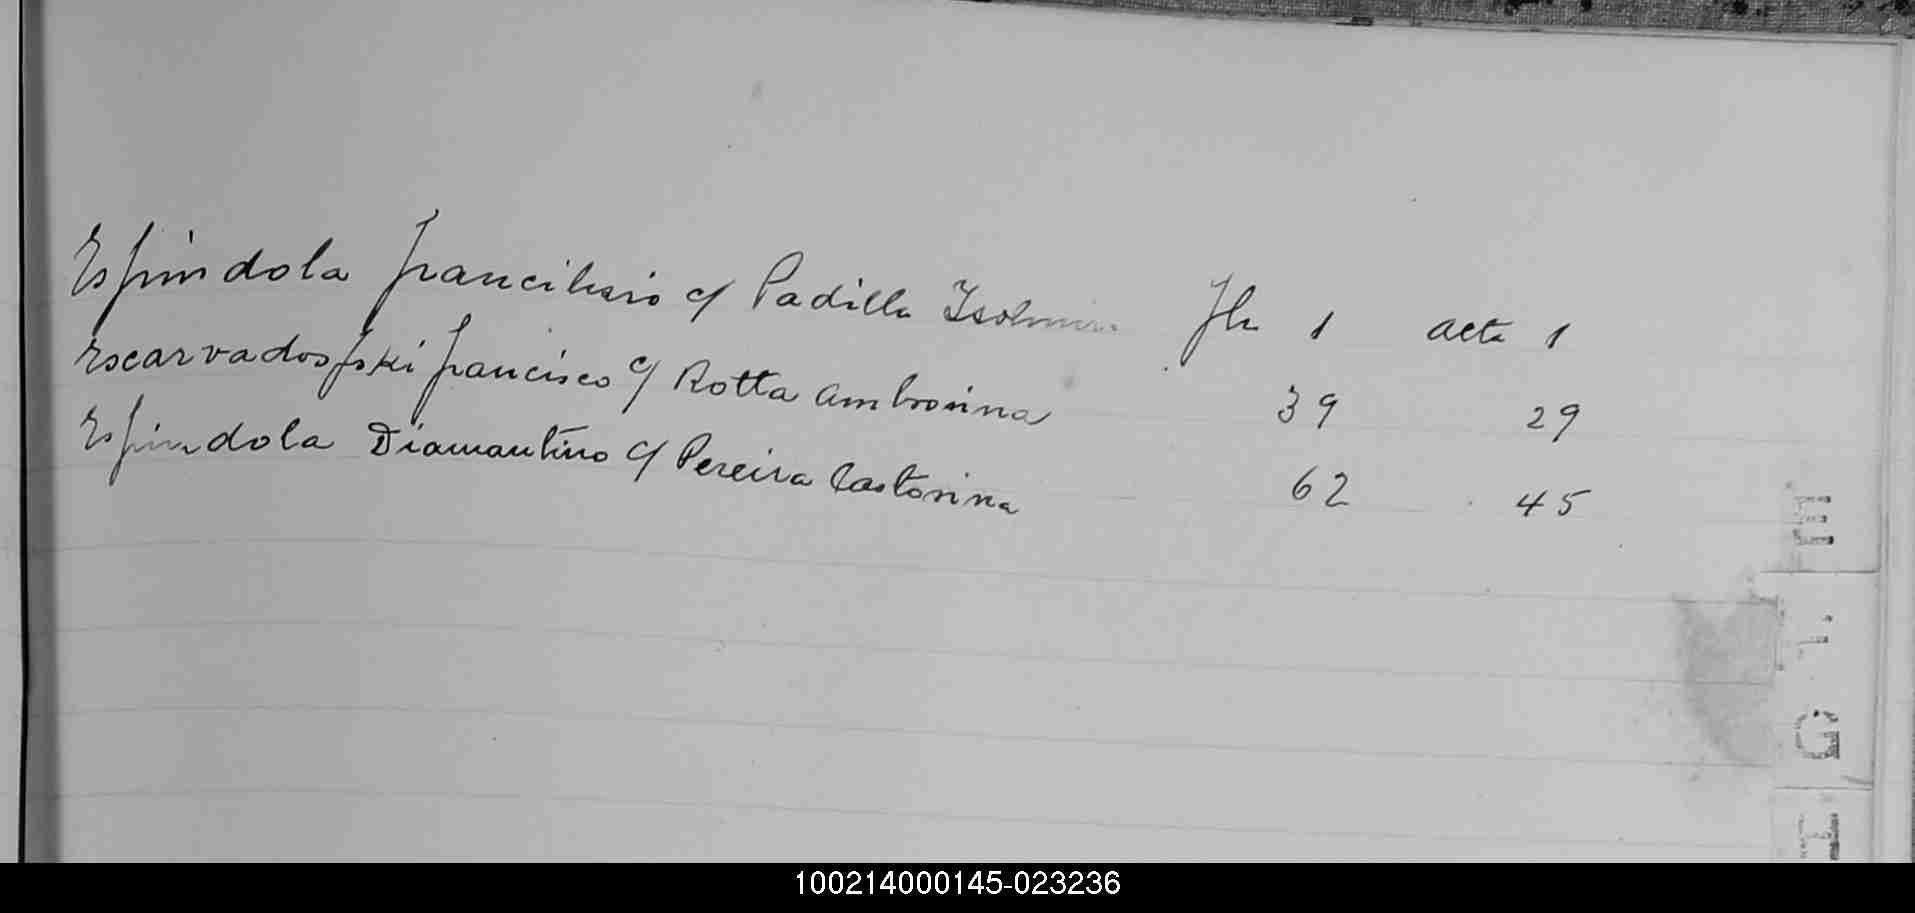 Espindola francilisio c/ Padilla Isolmira Flo 1 acta 1
Escarvadosfski francisco c/ Rotta Ambrosina 39 29
Espindola Diamantino c/ Pereira Castorina 62 45
E
F
G
I
100214000145-023236